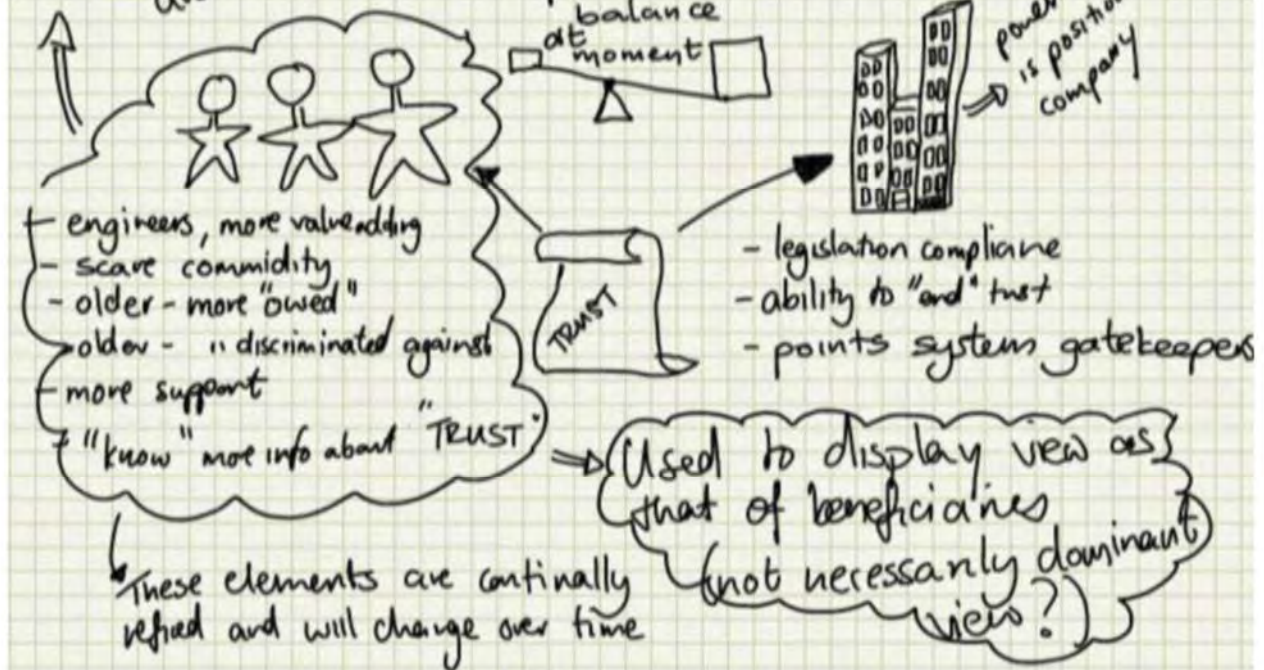 balance
at
moment
power
is position
company
- engineers, more valueadding
- scare commidity
- older - more "owed"
- older - " discriminated against
- more support
- "know" more info about "TRUST"
TRUST
- legislation compliane
- ability to "end" trust
- points system gatekeepers
Used to display view as
that of beneficiaries
(not necessarily dominant
view?)
These elements are continally
refined and will change over time